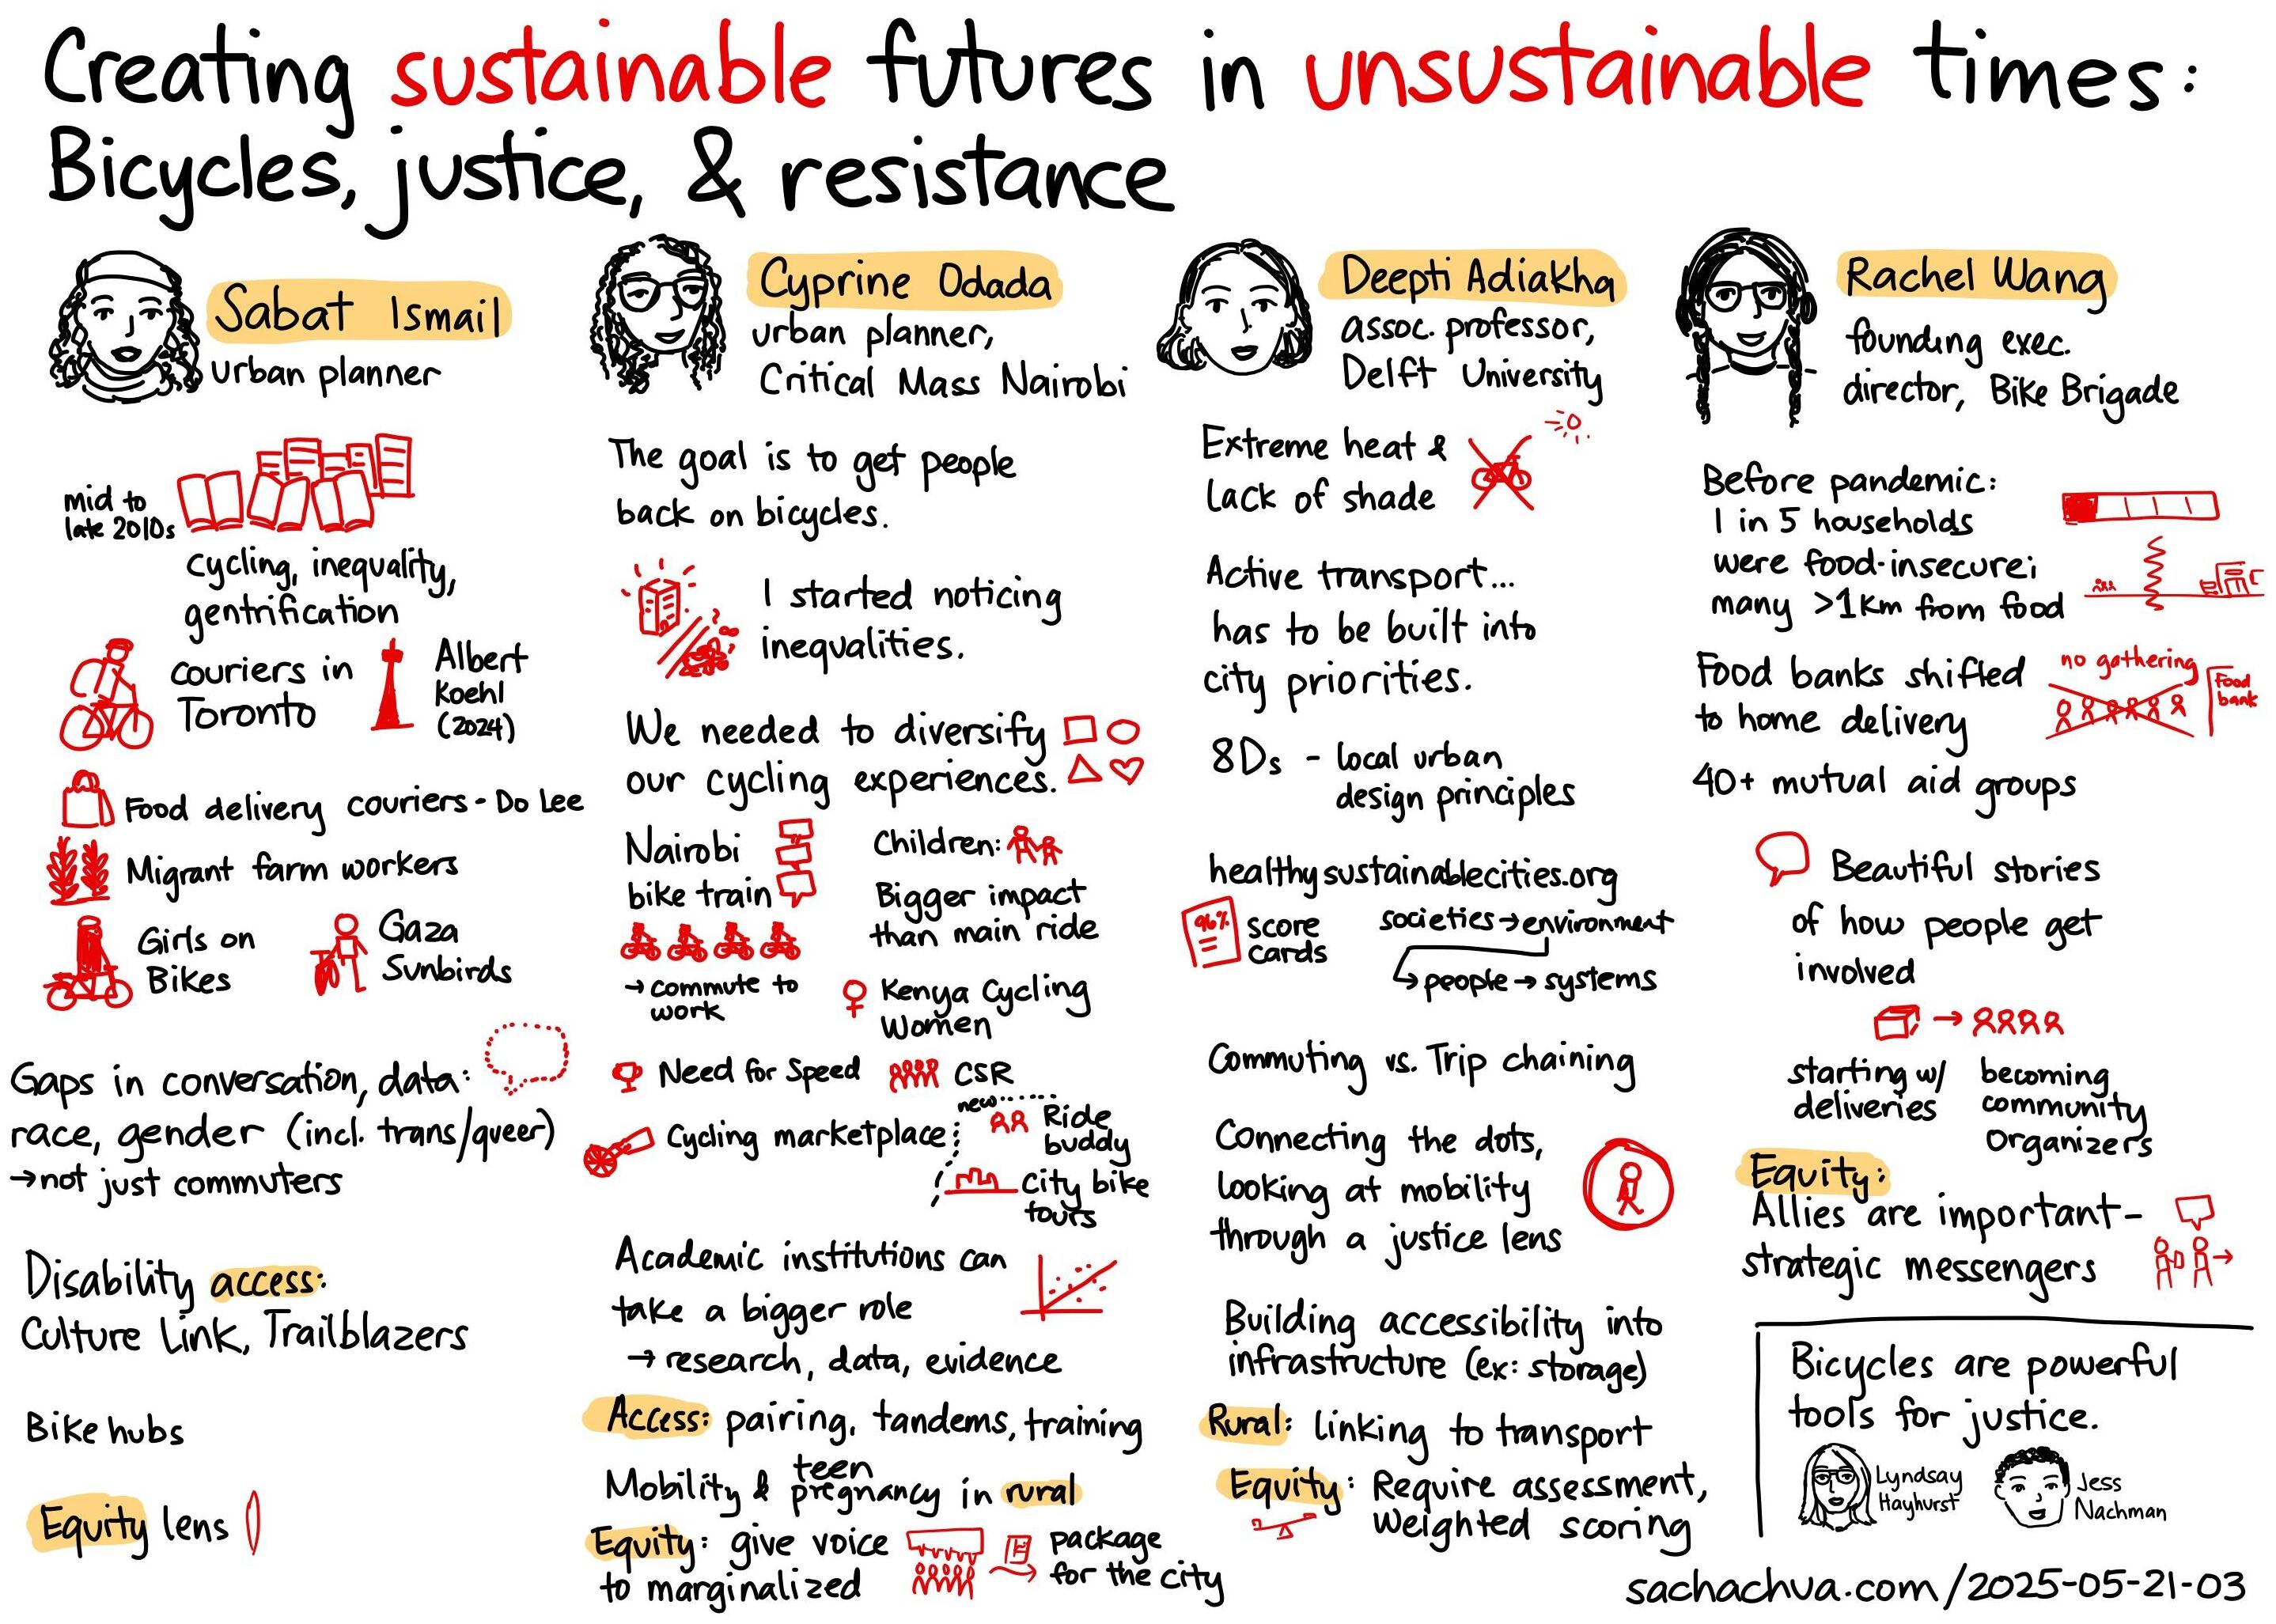 Creating sustainable futures in unsustainable times:
Bicycles, justice, & resistance
Sabat Ismail
urban planner
mid to
late 2010s
cycling, inequality,
gentrification
couriers in
Toronto
Albert
Koehl
(2024)
Food delivery couriers - Do Lee
Migrant farm workers
Girls on
Bikes
Gaza
Sunbirds
Gaps in conversation, data:
race, gender (incl. trans/queer)
→ not just commuters
Disability access:
Culture Link, Trailblazers
Bike hubs
Equity lens
Cyprine Odada
urban planner,
Critical Mass Nairobi
The goal is to get people
back on bicycles.
I started noticing
inequalities.
We needed to diversify
our cycling experiences.
Nairobi
bike train
→ commute to
work
Children:
Bigger impact
than main ride
Kenya Cycling
Women
Need for Speed
CSR
Cycling marketplace
new
Ride
buddy
City bike
tours
Academic institutions can
take a bigger role
→ research, data, evidence
Access: pairing, tandems, training
Mobility & teen pregnancy in rural
Equity: give voice
to marginalized
package
for the city
Deepti Adiakha
assoc. professor,
Delft University
Extreme heat &
lack of shade
Active transport...
has to be built into
city priorities.
8Ds - local urban
design principles
healthysustainablecities.org
96%
score
cards
societies → environment
→ people → systems
Commuting vs. Trip chaining
Connecting the dots,
looking at mobility
through a justice lens
Building accessibility into
infrastructure (ex: storage)
Rural: linking to transport
Equity: Require assessment,
weighted scoring
Rachel Wang
founding exec.
director, Bike Brigade
Before pandemic:
1 in 5 households
were food-insecure;
many >1km from food
Food banks shifted
to home delivery
no gathering
Food
bank
40+ mutual aid groups
Beautiful stories
of how people get
involved
starting w/
deliveries
→
becoming
community
organizers
Equity:
Allies are important -
strategic messengers
Bicycles are powerful
tools for justice.
Lyndsay
Hayhurst
Jess
Nachman
sachachua.com/2025-05-21-03